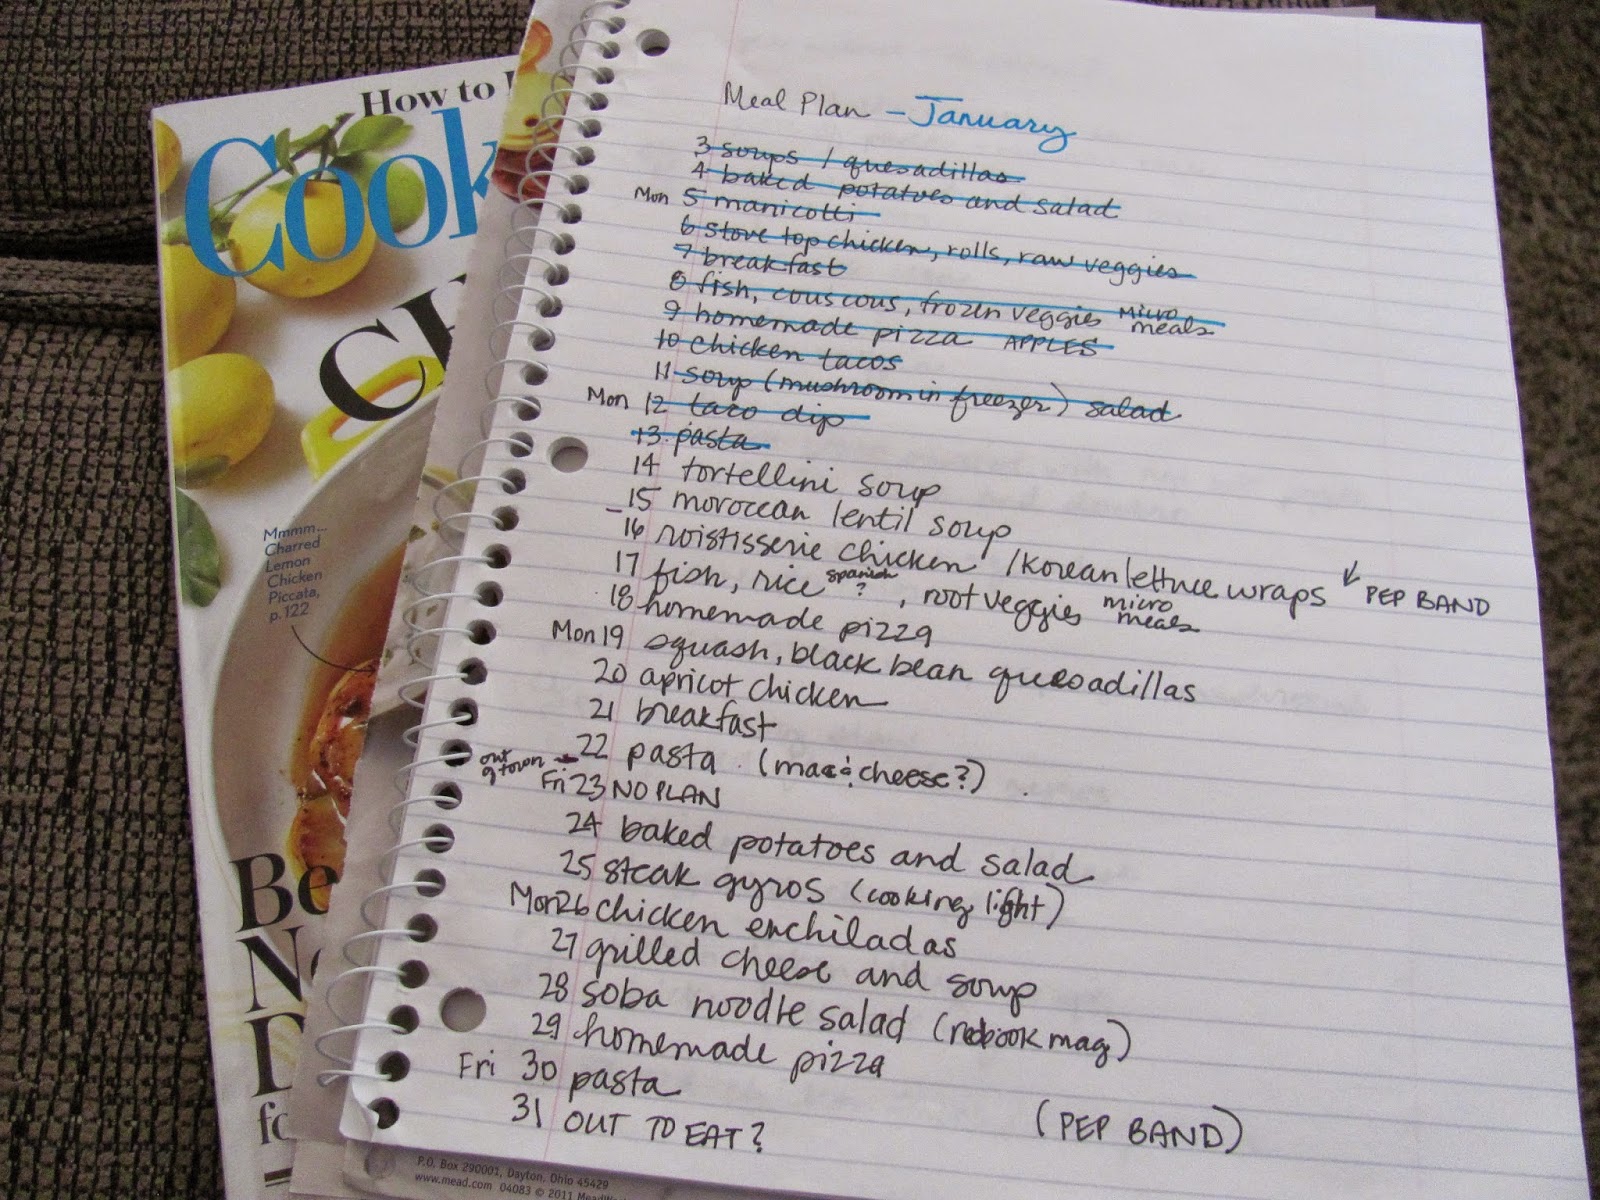 How to
Cook
Mmmm...
Charred
Lemon
Chicken
Piccata,
p. 122
Meal Plan - January
3 soups / quesadillas
4 baked potatoes and salad
Mon 5 manicotti
6 stove top chicken, rolls, raw veggies
7 breakfast
8 fish, couscous, frozen veggies micro meals
9 homemade pizza APPLES
10 chicken tacos
11 soup (mushroom in freezer) salad
Mon 12 taco dip
13 pasta
14 tortellini soup
15 moroccan lentil soup
16 roistisserie chicken / Korean lettuce wraps ↓ PEP BAND
17 fish, rice spanish ?, root veggies micro meals
18 homemade pizza
Mon 19 squash, black bean quesadillas
20 apricot chicken
21 breakfast
22 pasta (mac & cheese?)
out of town → Fri 23 NO PLAN
24 baked potatoes and salad
25 steak gyros (cooking light)
Mon 26 chicken enchiladas
27 grilled cheese and soup
28 soba noodle salad (redbook mag)
29 homemade pizza
Fri 30 pasta
31 OUT TO EAT? (PEP BAND)
P.O. Box 290001, Dayton, Ohio 45429
www.mead.com 04083 © 2011